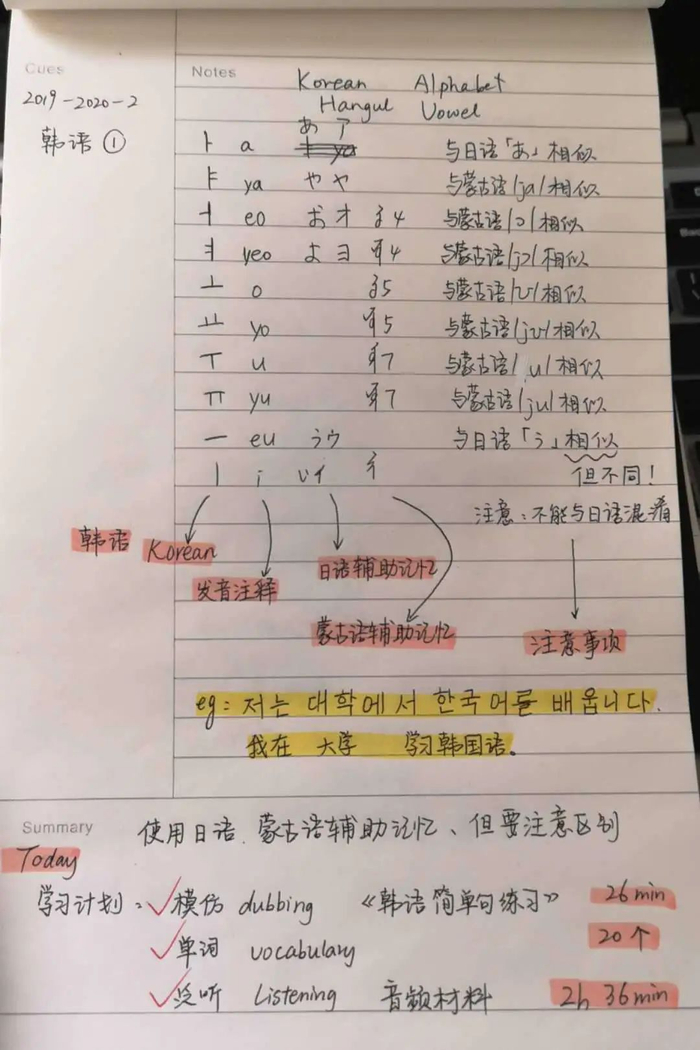 Cues
2019-2020-2
韩语 ①
Notes
Korean Alphabet
Hangul Vowel
あ ア
ㅏ a 与日语「あ」相似
ㅑ ya や ヤ 与蒙古语/ja/相似
ㅓ eo お オ 与蒙古语/ɔ/相似
ㅕ yeo よ ヨ 与蒙古语/jɔ/相似
ㅗ o 与蒙古语/ʊ/相似
ㅛ yo 与蒙古语/jʊ/相似
ㅜ u 与蒙古语/u/相似
ㅠ yu 与蒙古语/ju/相似
ㅡ eu う ウ 与日语「う」相似
ㅣ i い イ 但不同!
注意:不能与日语混淆
韩语 Korean
发音注释
日语辅助记忆
蒙古语辅助记忆
注意事项
eg: 저는 대학에서 한국어를 배웁니다.
我在 大学 学习韩国语。
Summary
使用日语、蒙古语辅助记忆、但要注意区别
Today
学习计划: ✓模仿 dubbing 《韩语简单句练习》 26min
✓单词 vocabulary 20个
✓泛听 Listening 音频材料 2h 36min